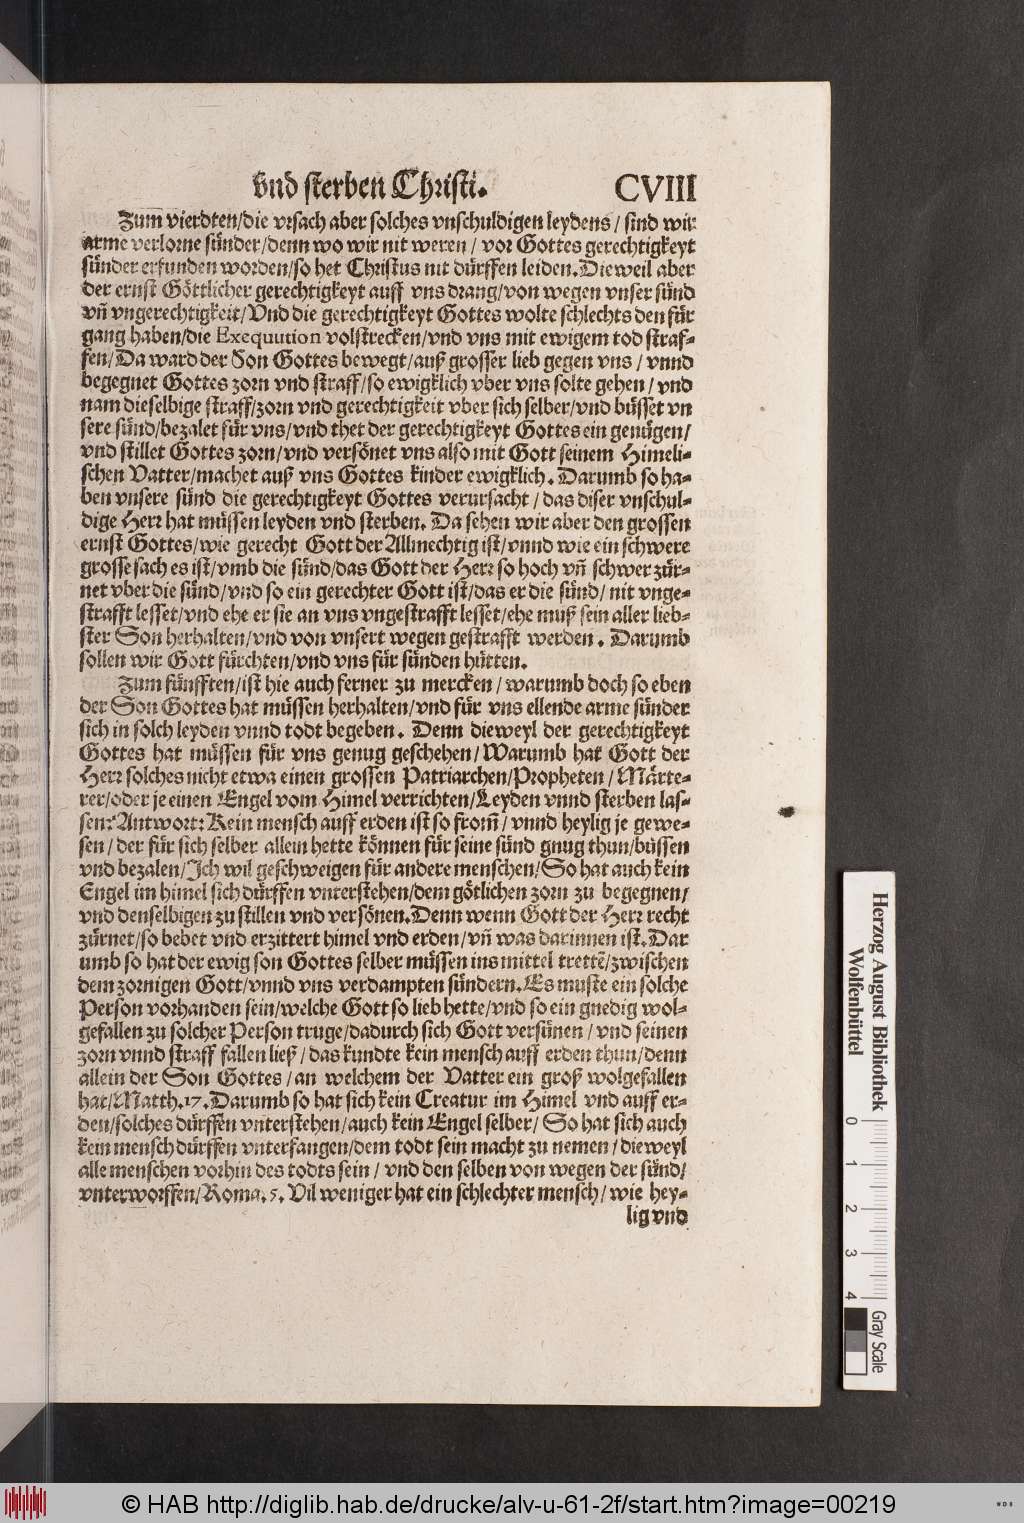 vnd sterben Christi. CVIII
Zum̃ vierdten/die vrsach aber solches vnschuldigen leydens/ sind wir
arme verlorne sünder/denn wo wir nit weren/ vor Gottes gerechtigkeyt
sünder erfunden worden/so het Christus nit dürffen leiden. Dieweil aber
der ernst Göttlicher gerechtigkeyt auff vns drang/von wegen vnser sünd
vñ vngerechtigkeit/Vnd die gerechtigkeyt Gottes wolte schlechts den für
gang haben/die Exequution volstrecken/vnd vns mit ewigem tod straf-
fen/Da ward der Son Gottes bewegt/auß grosser lieb gegen vns/ vnnd
begegnet Gottes zorn vnd straff/so ewigklich vber vns solte gehen/ vnd
nam dieselbige straff/zorn vnd gerechtigkeit vber sich selber/vnd büsset vn
sere sünd/bezalet für vns/vnd thet der gerechtigkeyt Gottes ein genügen/
vnd stillet Gottes zorn/vnd versönet vns also mit Gott seinem Himeli-
schen Vatter/machet auß vns Gottes kinder ewigklich. Darumb so ha-
ben vnsere sünd die gerechtigkeyt Gottes verursacht/ das diser vnschul-
dige Herr hat müssen leyden vnd sterben. Da sehen wir aber den grossen
ernst Gottes/wie gerecht Gott der Allmechtig ist/vnnd wie ein schwere
grosse sach es ist/vmb die sünd/das Gott der Herr so hoch vñ schwer zür-
net vber die sünd/vnd so ein gerechter Gott ist/das er die sünd/ nit vnge-
strafft lesset/vnd ehe er sie an vns vngestrafft lesset/ehe muß sein aller lieb-
ster Son herhalten/vnd von vnsert wegen gestrafft werden. Darumb
sollen wir Gott fürchten/vnd vns für sünden hütten.
Zum fünfften/ist hie auch ferner zu mercken/ warumb doch so eben
der Son Gottes hat müssen herhalten/vnd für vns ellende arme sünder
sich in solch leyden vnnd todt begeben. Denn dieweyl der gerechtigkeyt
Gottes hat müssen für vns genug geschehen/ Warumb hat Gott der
Herr solches nicht etwa einen grossen Patriarchen/Propheten/ Märte-
rer/oder je einen Engel vom Himel verrichten/Leyden vnnd sterben las-
sen? Antwort: Kein mensch auff erden ist so from̃/ vnnd heylig je gewe-
sen/ der für sich selber allein hette können für seine sünd gnug thun/büssen
vnd bezalen/Ich wil geschweigen für andere menschen/So hat auch kein
Engel im himel sich dürffen vnterstehen/dem götlichen zorn zu begegnen/
vnd denselbigen zu stillen vnd versönen. Denn wenn Gott der Herr recht
zürnet/so bebet vnd erzittert himel vnd erden/vñ was darinnen ist. Dar
umb so hat der ewig son Gottes selber müssen ins mittel trettẽ/zwischen
dem zornigen Gott/vnnd vns verdampten sündern. Es muste ein solche
Person vorhanden sein/welche Gott so lieb hette/vnd so ein gnedig wol-
gefallen zu solcher Person truge/dadurch sich Gott versünen/ vnd seinen
zorn vnnd straff fallen ließ/ das kundte kein mensch auff erden thun/denn
allein der Son Gottes/an welchem der Vatter ein groß wolgefallen
hat/Matth.17. Darumb so hat sich kein Creatur im Himel vnd auff er-
den/solches dürffen vnterstehen/auch kein Engel selber/ So hat sich auch
kein mensch dürffen vnterfangen/dem todt sein macht zu nemen/ dieweyl
alle menschen vorhin des todts sein/ vnd den selben von wegen der sünd/
vnterworffen/Roma.5. Vil weniger hat ein schlechter mensch/ wie hey-
lig vnd
Herzog August Bibliothek
Wolfenbüttel
0 1 2 3 4
Gray Scale
© HAB http://diglib.hab.de/drucke/alv-u-61-2f/start.htm?image=00219